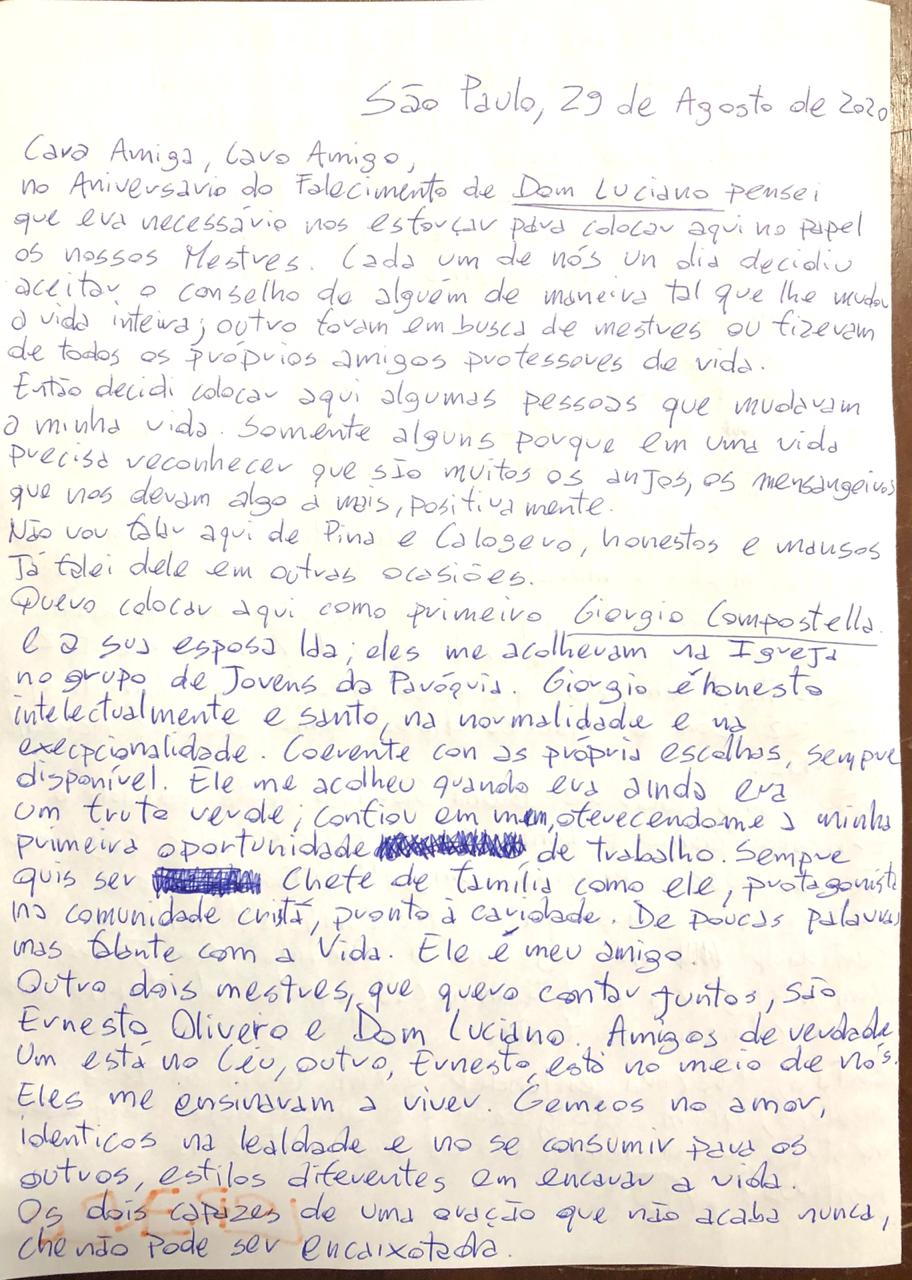 São Paulo, 29 de Agosto de 2020
Cara Amiga, Caro Amigo,
no Aniversário do Falecimento de Dom Luciano pensei
que era necessário nos esforçar para colocar aqui no papel
os nossos Mestres. Cada um de nós un dia decidiu
aceitar o conselho de alguém de maneira tal que lhe mudou
a vida inteira; outro foram em busca de mestres ou fizeram
de todos os próprios amigos professores de vida.
Então decidi colocar aqui algumas pessoas que mudaram
a minha vida. Somente alguns porque em uma vida
precisa reconhecer que são muitos os anjos, os mensangeiros
que nos deram algo a mais, positivamente.
Não vou falar aqui de Pina e Calogero, honestos e mansos
Já falei dele em outras ocasiões.
Quero colocar aqui como primeiro Giorgio Compostella
e a sua esposa Ida; eles me acolheram na Igreja
no grupo de Jovens da Paróquia. Giorgio é honesto
intelectualmente e santo, na normalidade e na
execpcionalidade. Coerente con as própria escolhas, sempre
disponível. Ele me acolheu quando era ainda era
um fruto verde; confiou em mem, oferecendome a minha
primeira oportunidade de trabalho. Sempre
quis ser Chefe de família como ele, protagonista
na comunidade cristã, pronto à caridade. De poucas palavras
mas falante com a Vida. Ele é meu amigo.
Outro dois mestres, que quero contar juntos, são
Ernesto Olivero e Dom Luciano. Amigos de verdade
Um está no Céu, outro, Ernesto, está no meio de nós.
Eles me ensinaram a viver. Gemeos no amor,
identicos na lealdade e no se consumir para os
outros, estilos diferentes em encarar a vida.
Os dois capazes de uma oração que não acaba nunca,
che não pode ser encaixotada.